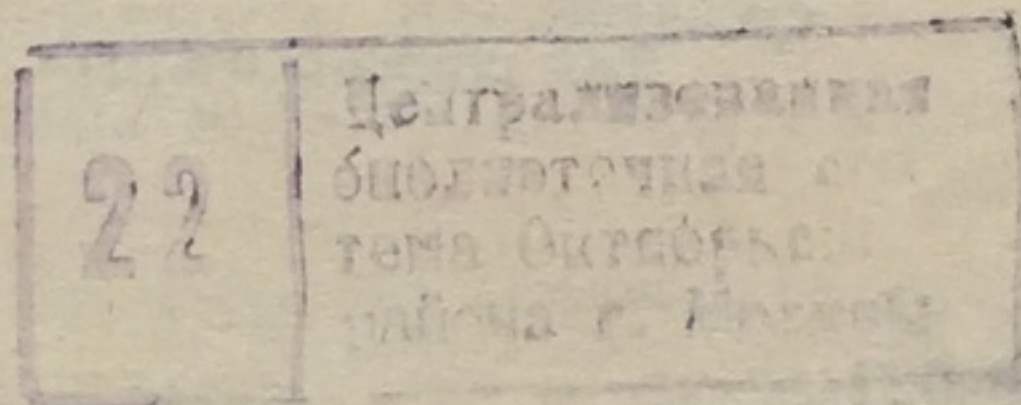 22
Централизованная
библиотечная сис
тема Октябрьского
района г. Москвы